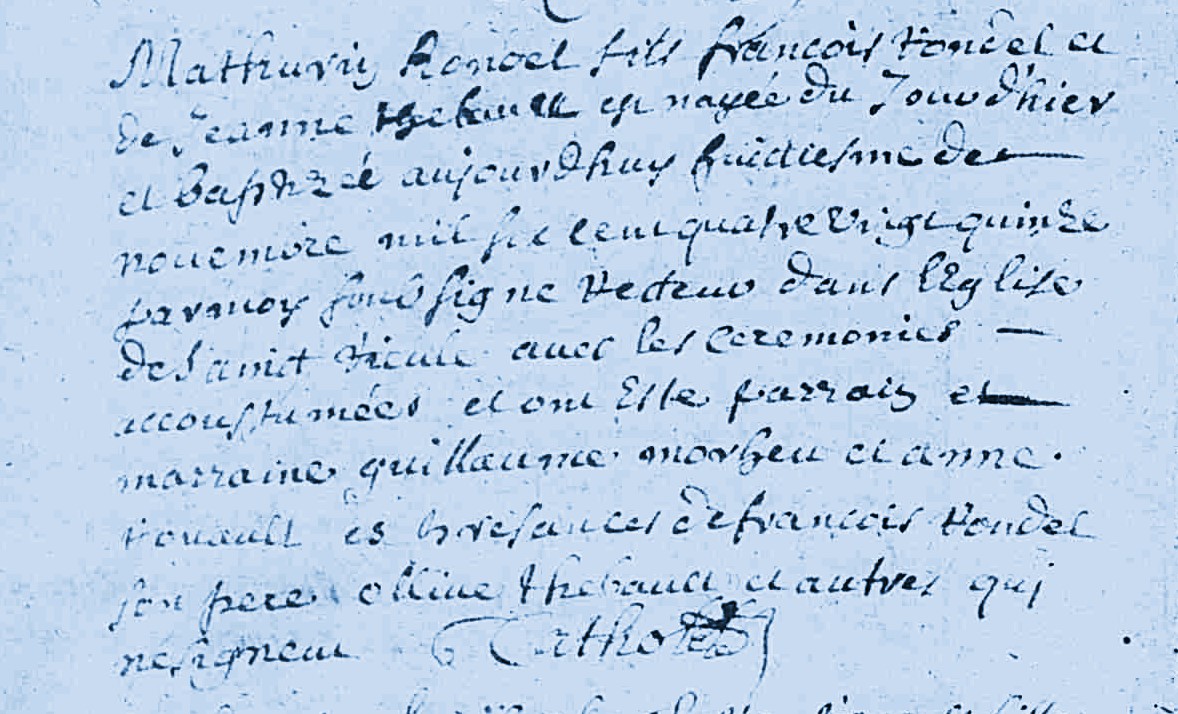 Mathurin Rondel fils françois Rondel et
de Jeanne thebault est nayée du Jourdhier
et baptizée aujourdhuy huictiesme de
novembre mil six cent quatre vingt quinze
par moy soubsigne Recteur dans l'Eglise
de Sainct Vieule avec les ceremonies
accoustumées et ont Este parrain et
marraine guillaume morheu et anne
Rouault es presances de françois Rondel
son pere ollive thebault et autres qui
ne signent